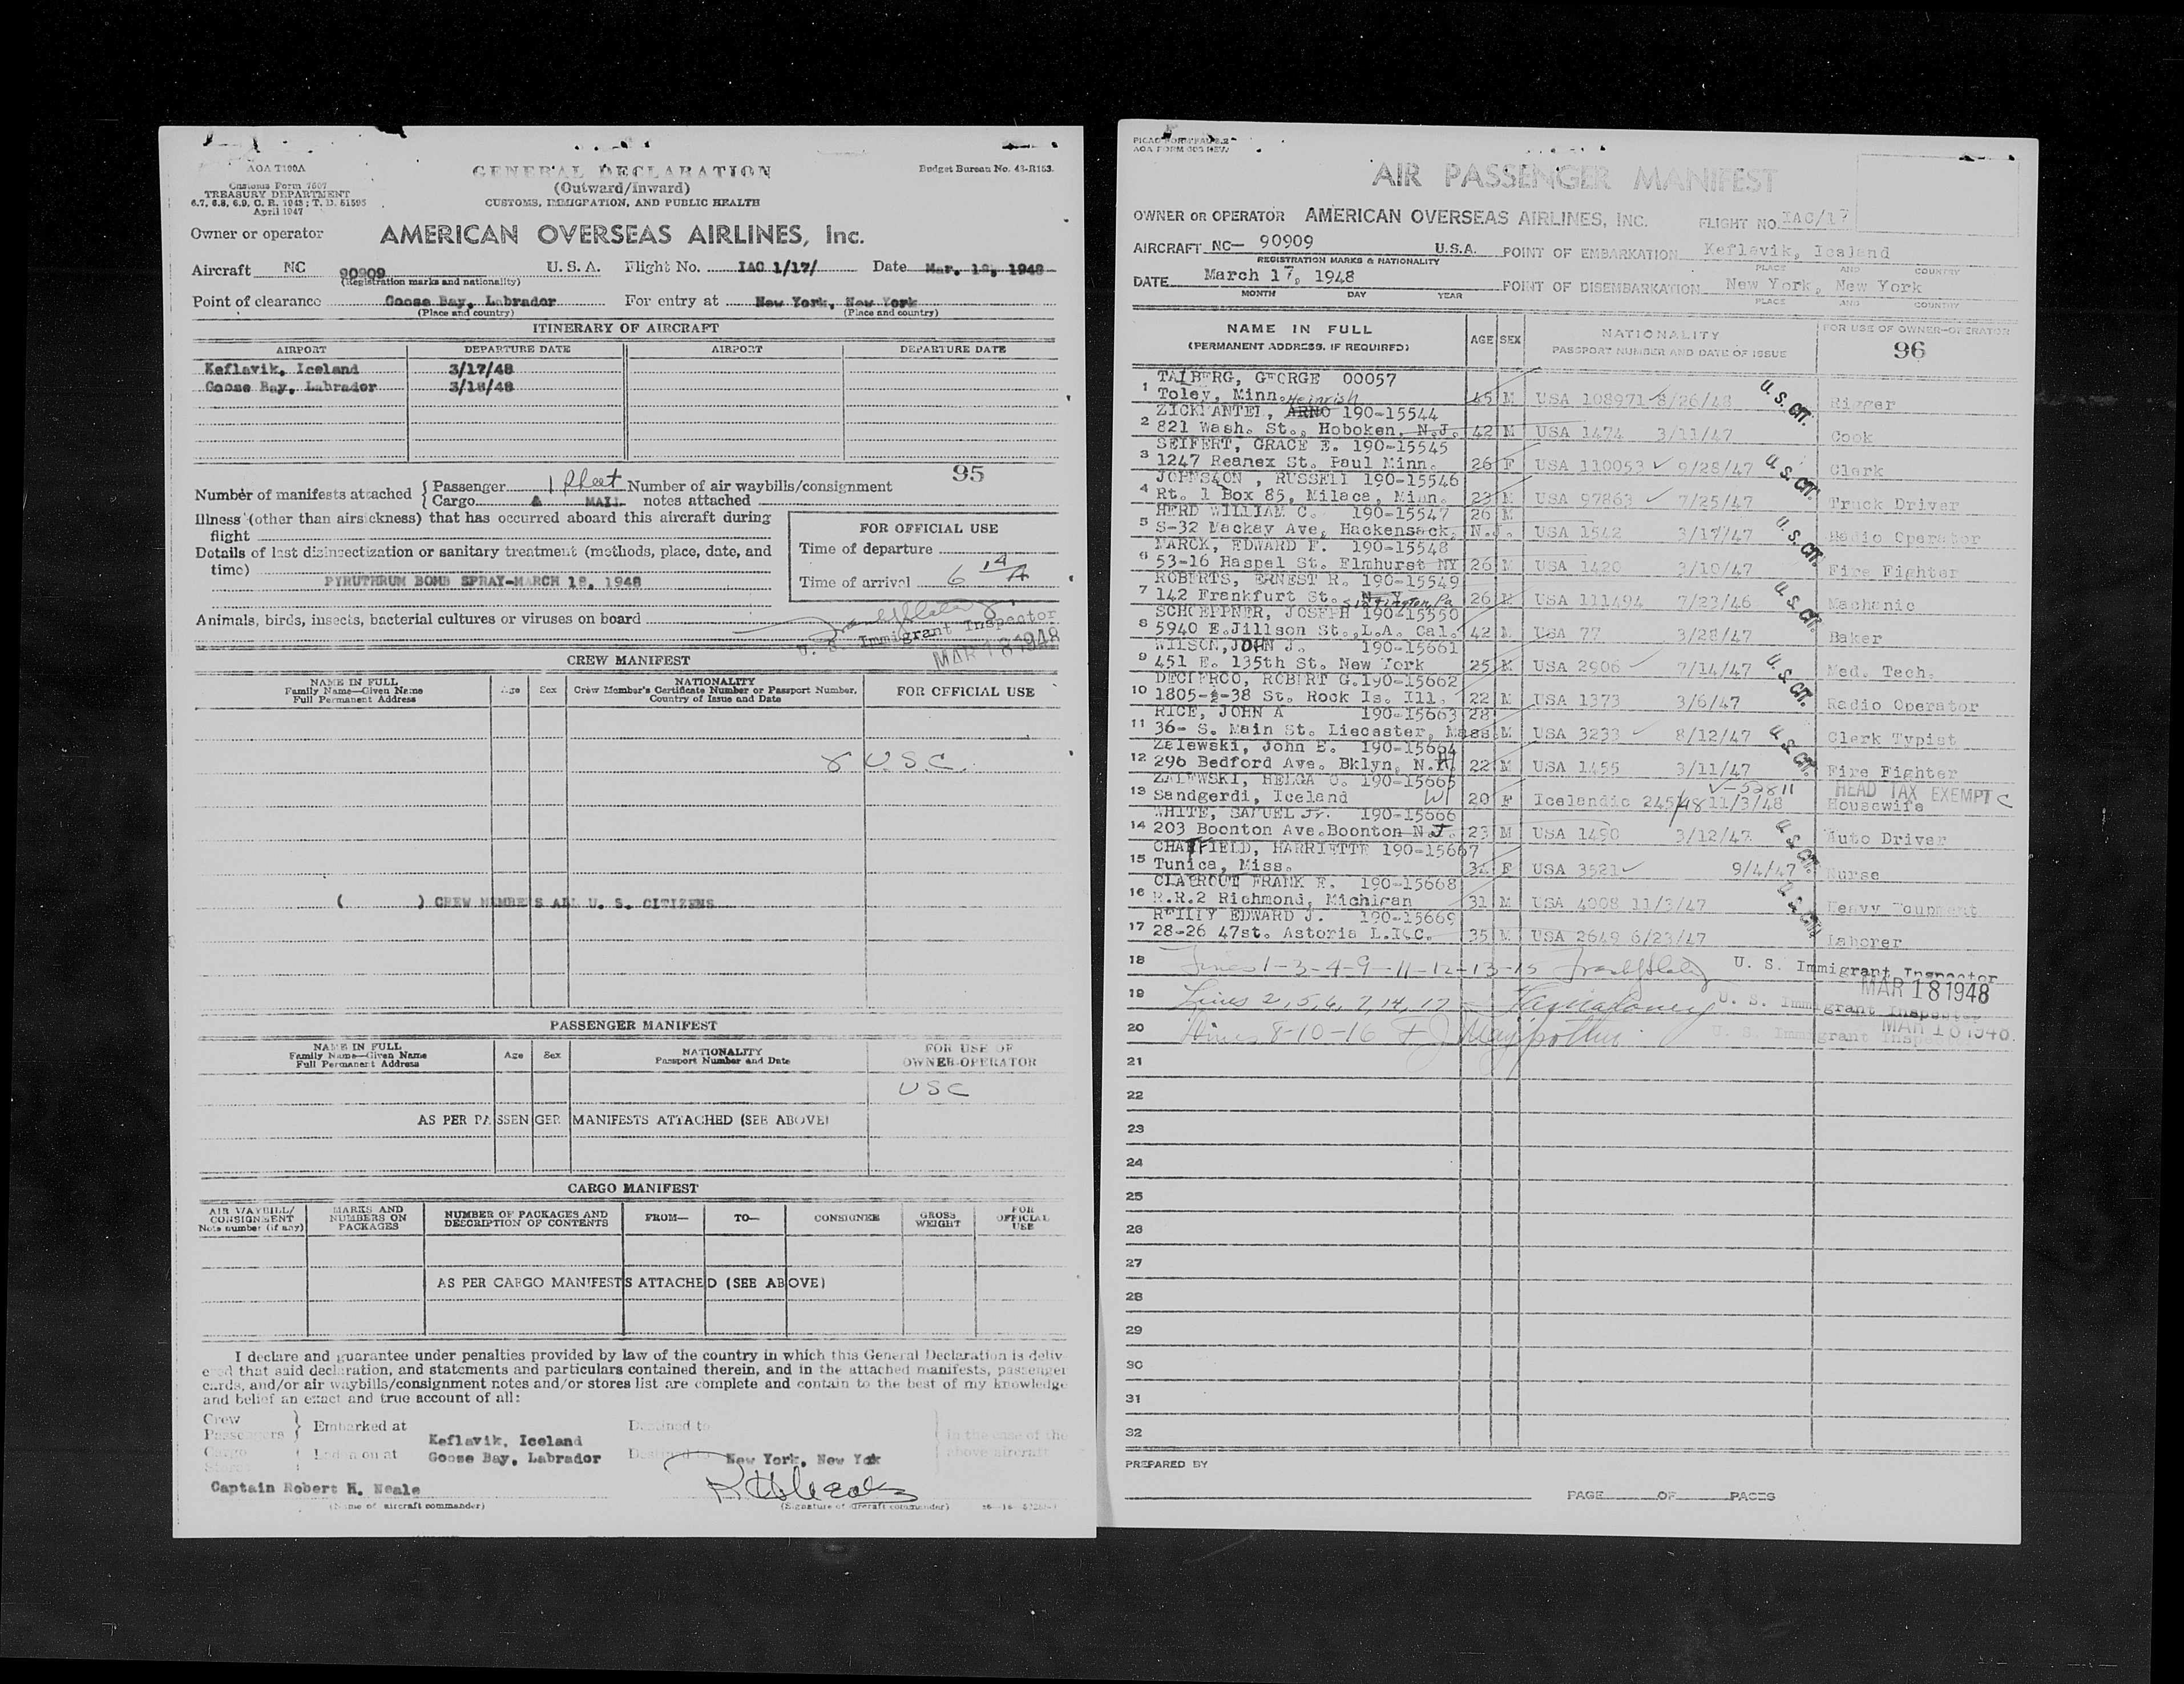 AOA T100A
Customs Form 7507
TREASURY DEPARTMENT
6.7, 6.8, 6.9, C. R. 1943; T. D. 51595
April 1947
GENERAL DECLARATION
(Outward/Inward)
CUSTOMS, IMMIGRATION, AND PUBLIC HEALTH
Budget Bureau No. 43-R153.
Owner or operator AMERICAN OVERSEAS AIRLINES, Inc.
Aircraft NC 90909 U. S. A. Flight No. IAC 1/17/ Date Mar. 18, 1948
(Registration marks and nationality)
Point of clearance Goose Bay, Labrador For entry at New York, New York
(Place and country) (Place and country)
ITINERARY OF AIRCRAFT
AIRPORT DEPARTURE DATE AIRPORT DEPARTURE DATE
Keflavik, Iceland 3/17/48
Goose Bay, Labrador 3/18/48
95
Number of manifests attached { Passenger 1 Sheet Number of air waybills/consignment
Cargo & MAIL notes attached
Illness (other than airsickness) that has occurred aboard this aircraft during
flight
Details of last disinsectization or sanitary treatment (methods, place, date, and
time)
PYRUTHRUM BOMB SPRAY-MARCH 18, 1948
FOR OFFICIAL USE
Time of departure
Time of arrival 6 14 A
Animals, birds, insects, bacterial cultures or viruses on board
U. S. Immigrant Inspector
MAR 18 1948
CREW MANIFEST
NAME IN FULL
Family Name—Given Name
Full Permanent Address
Age Sex
NATIONALITY
Crew Member's Certificate Number or Passport Number,
Country of Issue and Date
FOR OFFICIAL USE
8 U.S.C.
( ) CREW MEMBERS ALL U. S. CITIZENS
PASSENGER MANIFEST
NAME IN FULL
Family Name—Given Name
Full Permanent Address
Age Sex
NATIONALITY
Passport Number and Date
FOR USE OF
OWNER-OPERATOR
USC
AS PER PASSENGER MANIFESTS ATTACHED (SEE ABOVE)
CARGO MANIFEST
AIR WAYBILL/
CONSIGNMENT
Note number (if any)
MARKS AND
NUMBERS ON
PACKAGES
NUMBER OF PACKAGES AND
DESCRIPTION OF CONTENTS
FROM— TO— CONSIGNEE
GROSS
WEIGHT
FOR
OFFICIAL
USE
AS PER CARGO MANIFESTS ATTACHED (SEE ABOVE)
I declare and guarantee under penalties provided by law of the country in which this General Declaration is deliv
ered that said declaration, and statements and particulars contained therein, and in the attached manifests, passenger
cards, and/or air waybills/consignment notes and/or stores list are complete and contain to the best of my knowledge
and belief an exact and true account of all:
Crew
Passengers } Embarked at Destined to
Keflavik, Iceland
Cargo
Stores Laden on at Goose Bay, Labrador Destined New York, New Yok
in the case of the
above aircraft
Captain Robert H. Neale
(Name of aircraft commander) (Signature of aircraft commander)
PICAO FORM FAL 2.2
AOA FORM 605 NEW
AIR PASSENGER MANIFEST
OWNER OR OPERATOR AMERICAN OVERSEAS AIRLINES, INC. FLIGHT NO. IAC/17
AIRCRAFT NC— 90909 U.S.A. POINT OF EMBARKATION Keflavik, Iceland
REGISTRATION MARKS & NATIONALITY PLACE AND COUNTRY
DATE March 17, 1948 POINT OF DISEMBARKATION New York, New York
MONTH DAY YEAR PLACE AND COUNTRY
NAME IN FULL
(PERMANENT ADDRESS, IF REQUIRED)
AGE SEX
NATIONALITY
PASSPORT NUMBER AND DATE OF ISSUE
FOR USE OF OWNER-OPERATOR
96
TALBERG, GEORGE 00057
1 Toley, Minn. 45 M USA 108971 8/26/48 U. S. CIT. Rigger
Heinrich
ZICKMANTEL, ARNO 190-15544
2 821 Wash. St., Hoboken, N.J. 42 M USA 1474 3/11/47 Cook
SEIFERT, GRACE E. 190-15545
3 1247 Reanex St. Paul Minn. 26 F USA 110053 9/28/47 U. S. CIT. Clerk
JOHNSON, RUSSELL 190-15546
4 Rt. 1 Box 85, Milaca, Minn. 23 M USA 97863 7/25/47 Truck Driver
HERD WILLIAM C. 190-15547 26 M
5 S-32 Mackay Ave, Hackensack, N.J. USA 1542 3/17/47 U. S. CIT. Radio Operator
MARCK, EDWARD F. 190-15548
6 53-16 Haspel St. Elmhurst NY 26 M USA 1420 3/10/47 Fire Fighter
ROBERTS, ERNEST R. 190-15549
7 142 Frankfurt St. N.Y. 26 M USA 111494 7/23/46 U. S. CIT. Machanic
SCHOEPPNER, JOSEPH 190-15550
8 5940 E.Jillson St.,L.A. Cal. 42 M USA 77 3/28/47 Baker
WILSON, JOHN J. 190-15661
9 451 E. 135th St. New York 25 M USA 2906 7/14/47 U. S. CIT. Med. Tech.
DECLERCQ, ROBERT G.190-15662
10 1805-½-38 St. Rock Is. Ill. 22 M USA 1373 3/6/47 Radio Operator
RICE, JOHN A 190-15663 28
11 36- S. Main St. Liecaster, Mass M USA 3233 8/12/47 U. S. CIT. Clerk Typist
Zalewski, John E. 190-15664
12 296 Bedford Ave. Bklyn, N.Y. 22 M USA 1455 3/11/47 Fire Fighter
ZALEWSKI, HELGA O. 190-15665 V-52811 HEAD TAX EXEMPT C
13 Sandgerdi, Iceland WI 20 F Icelandic 245/48 11/3/48 Housewife
WHITE, SAMUEL Jr. 190-15666
14 203 Boonton Ave.Boonton N.J. 23 M USA 1490 3/12/47 U. S. CIT. Auto Driver
CHATFIELD, HARRIETTE 190-15667
15 Tunica, Miss. F USA 3521 9/4/47 Nurse
CLAEROUT FRANK E. 190-15668
16 R.R.2 Richmond, Michigan 31 M USA 4008 11/3/47 U. S. CIT. Heavy Equpment
REILLY EDWARD J. 190-15669
17 28-26 47st. Astoria L.I.C. 35 M USA 2649 6/23/47 Laborer
18 Lines 1-3-4-9-11-12-13-15 U. S. Immigrant Inspector
MAR 18 1948
19 Lines 2,5,6,7,14,17 U. S. Immigrant Inspector
MAR 18 1948
20 Lines 8-10-16 U. S. Immigrant Insp
21
22
23
24
25
26
27
28
29
30
31
32
PREPARED BY
PAGE OF PAGES